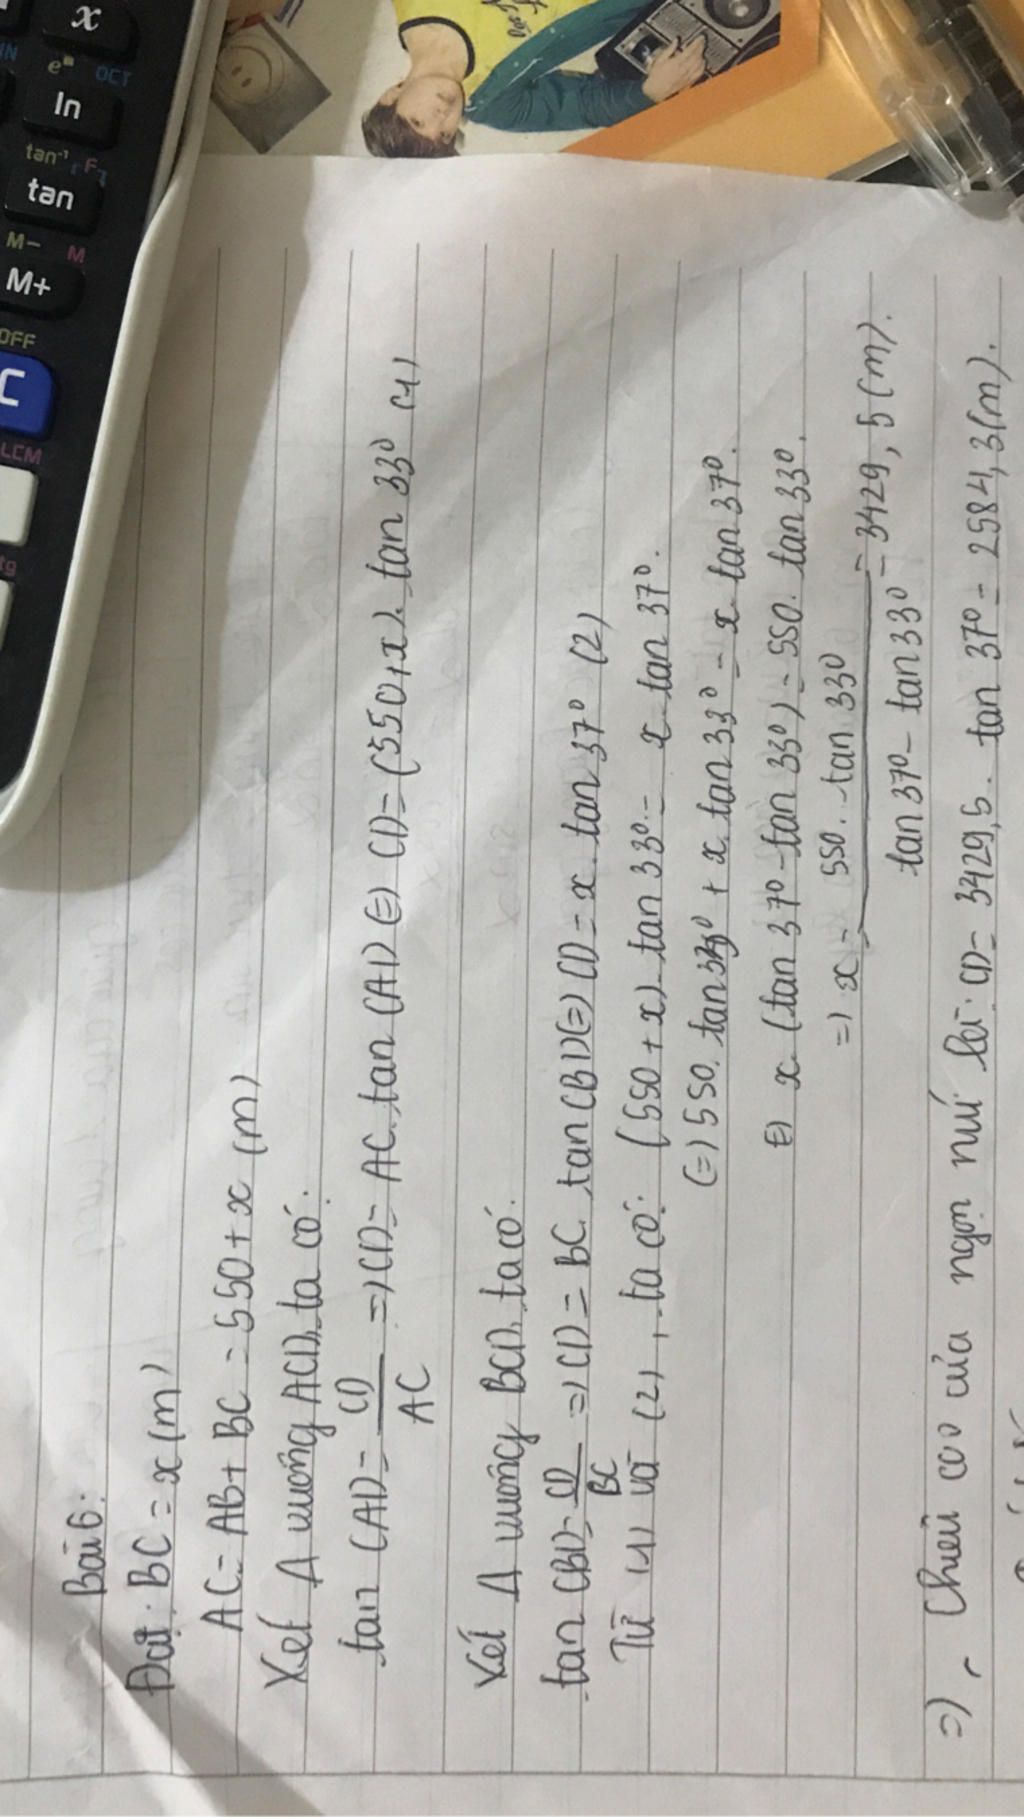 x
IN
e■ OCT
ln
tan⁻¹ F
tan
M- M
M+
OFF
C
LCM
Bài 6:
Đặt: BC = x (m)
AC = AB + BC = 550 + x (m)
Xét Δ vuông ACD, ta có:
tan CAD = CD/AC => CD = AC. tan CAD (=) CD = (550 + x). tan 33⁰ (1)
Xét Δ vuông BCD, ta có:
tan CBD = CD/BC => CD = BC. tan CBD (=) CD = x. tan 37⁰ (2)
Từ (1) và (2), ta có: (550 + x). tan 33⁰ = x. tan 37⁰.
(=) 550. tan 33⁰ + x. tan 33⁰ = x. tan 37⁰.
(=) x. (tan 37⁰ - tan 33⁰) = 550. tan 33⁰.
=) x = 550. tan 33⁰ / tan 37⁰ - tan 33⁰ = 3429,5 (m).
=), Chiều cao của ngọn núi là: CD = 3429,5. tan 37⁰ = 2584,3 (m).